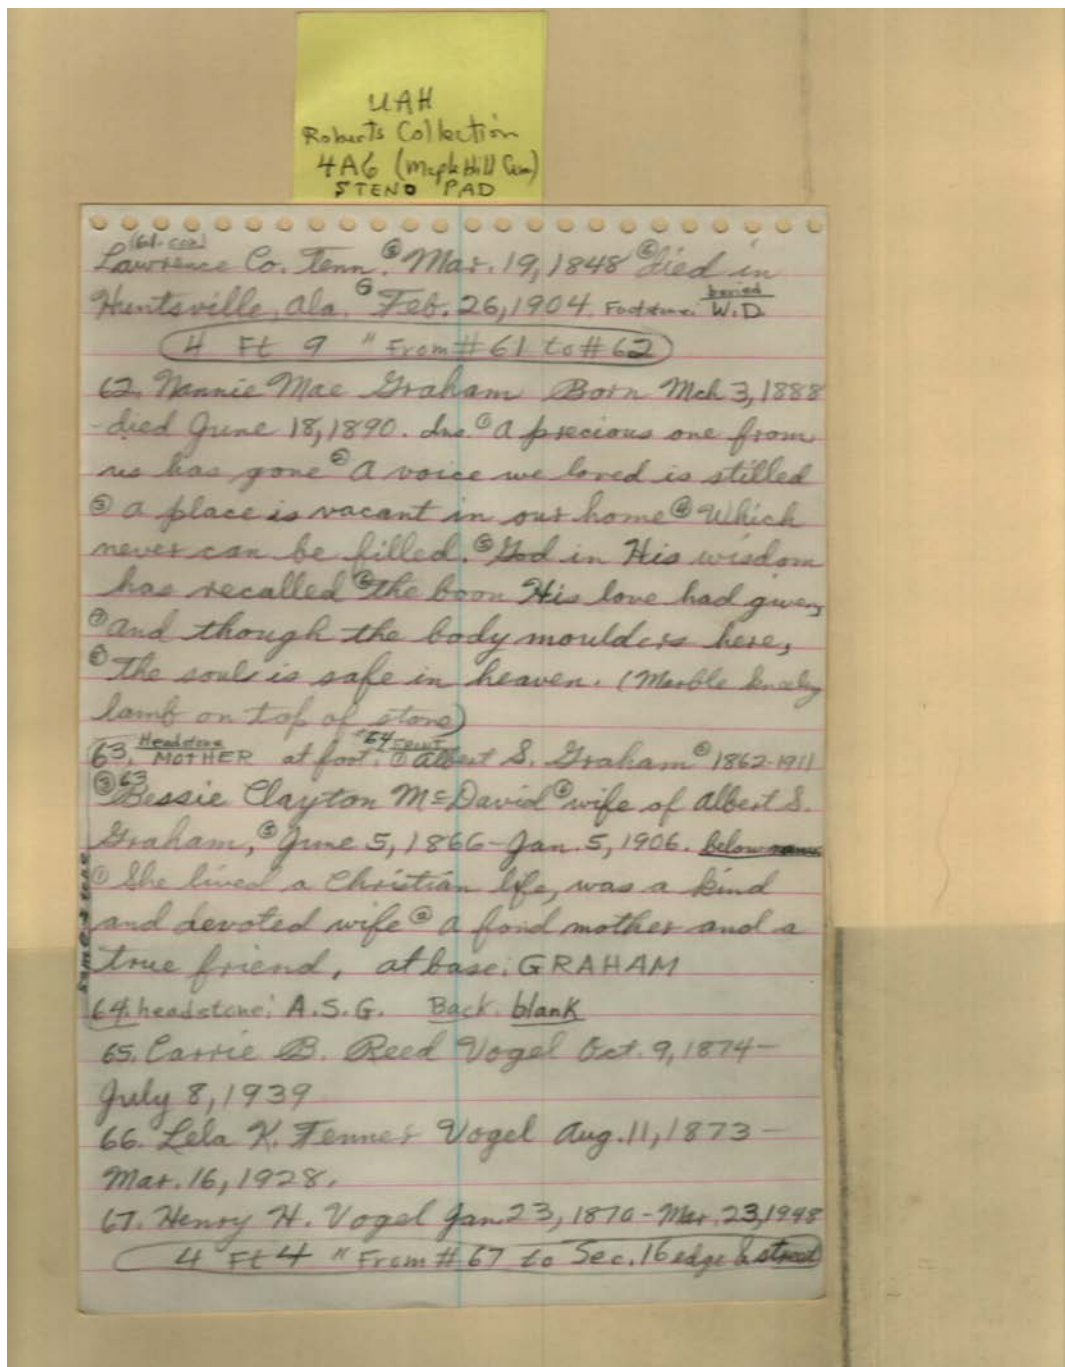 UAH
Roberts Collection
4A6 (Maple Hill Cem)
STENO PAD
(61-con)
Lawrence Co. Tenn. ⑤ Mar. 19, 1848 ⑥ died in
Huntsville, Ala. Feb. 26, 1904. Footstone: W.D.
buried
4 Ft 9 " From # 61 to # 62
62. Nannie Mae Graham Born Mch 3, 1888
-died June 18, 1890. Ins. ① A precious one from
us has gone ② A voice we loved is stilled
③ A place is vacant in our home ④ Which
never can be filled. ⑤ God in His wisdom
has recalled ⑥ the boon His love had given,
⑦ And though the body moulders here,
⑧ The soul is safe in heaven. (Marble kneeling
lamb on top of stone)
63. Headstone MOTHER at foot: #64 FRONT ① Albert S. Graham ② 1862-1911
③ 63 Bessie Clayton McDavid ④ wife of Albert S.
Graham, ⑤ June 5, 1866 - Jan. 5, 1906. below
① She lived a Christian life, was a kind
and devoted wife ② A fond mother and a
true friend, at base: GRAHAM
same stone
64. headstone: A.S.G. Back. blank
65. Carrie B. Reed Vogel Oct. 9, 1874 -
July 8, 1939
66. Lela K. Fenner Vogel Aug. 11, 1873 -
Mar. 16, 1928.
67. Henry H. Vogel Jan 23, 1870 - Mar. 23, 1948
4 Ft 4 " From # 67 to Sec. 16 edge & street